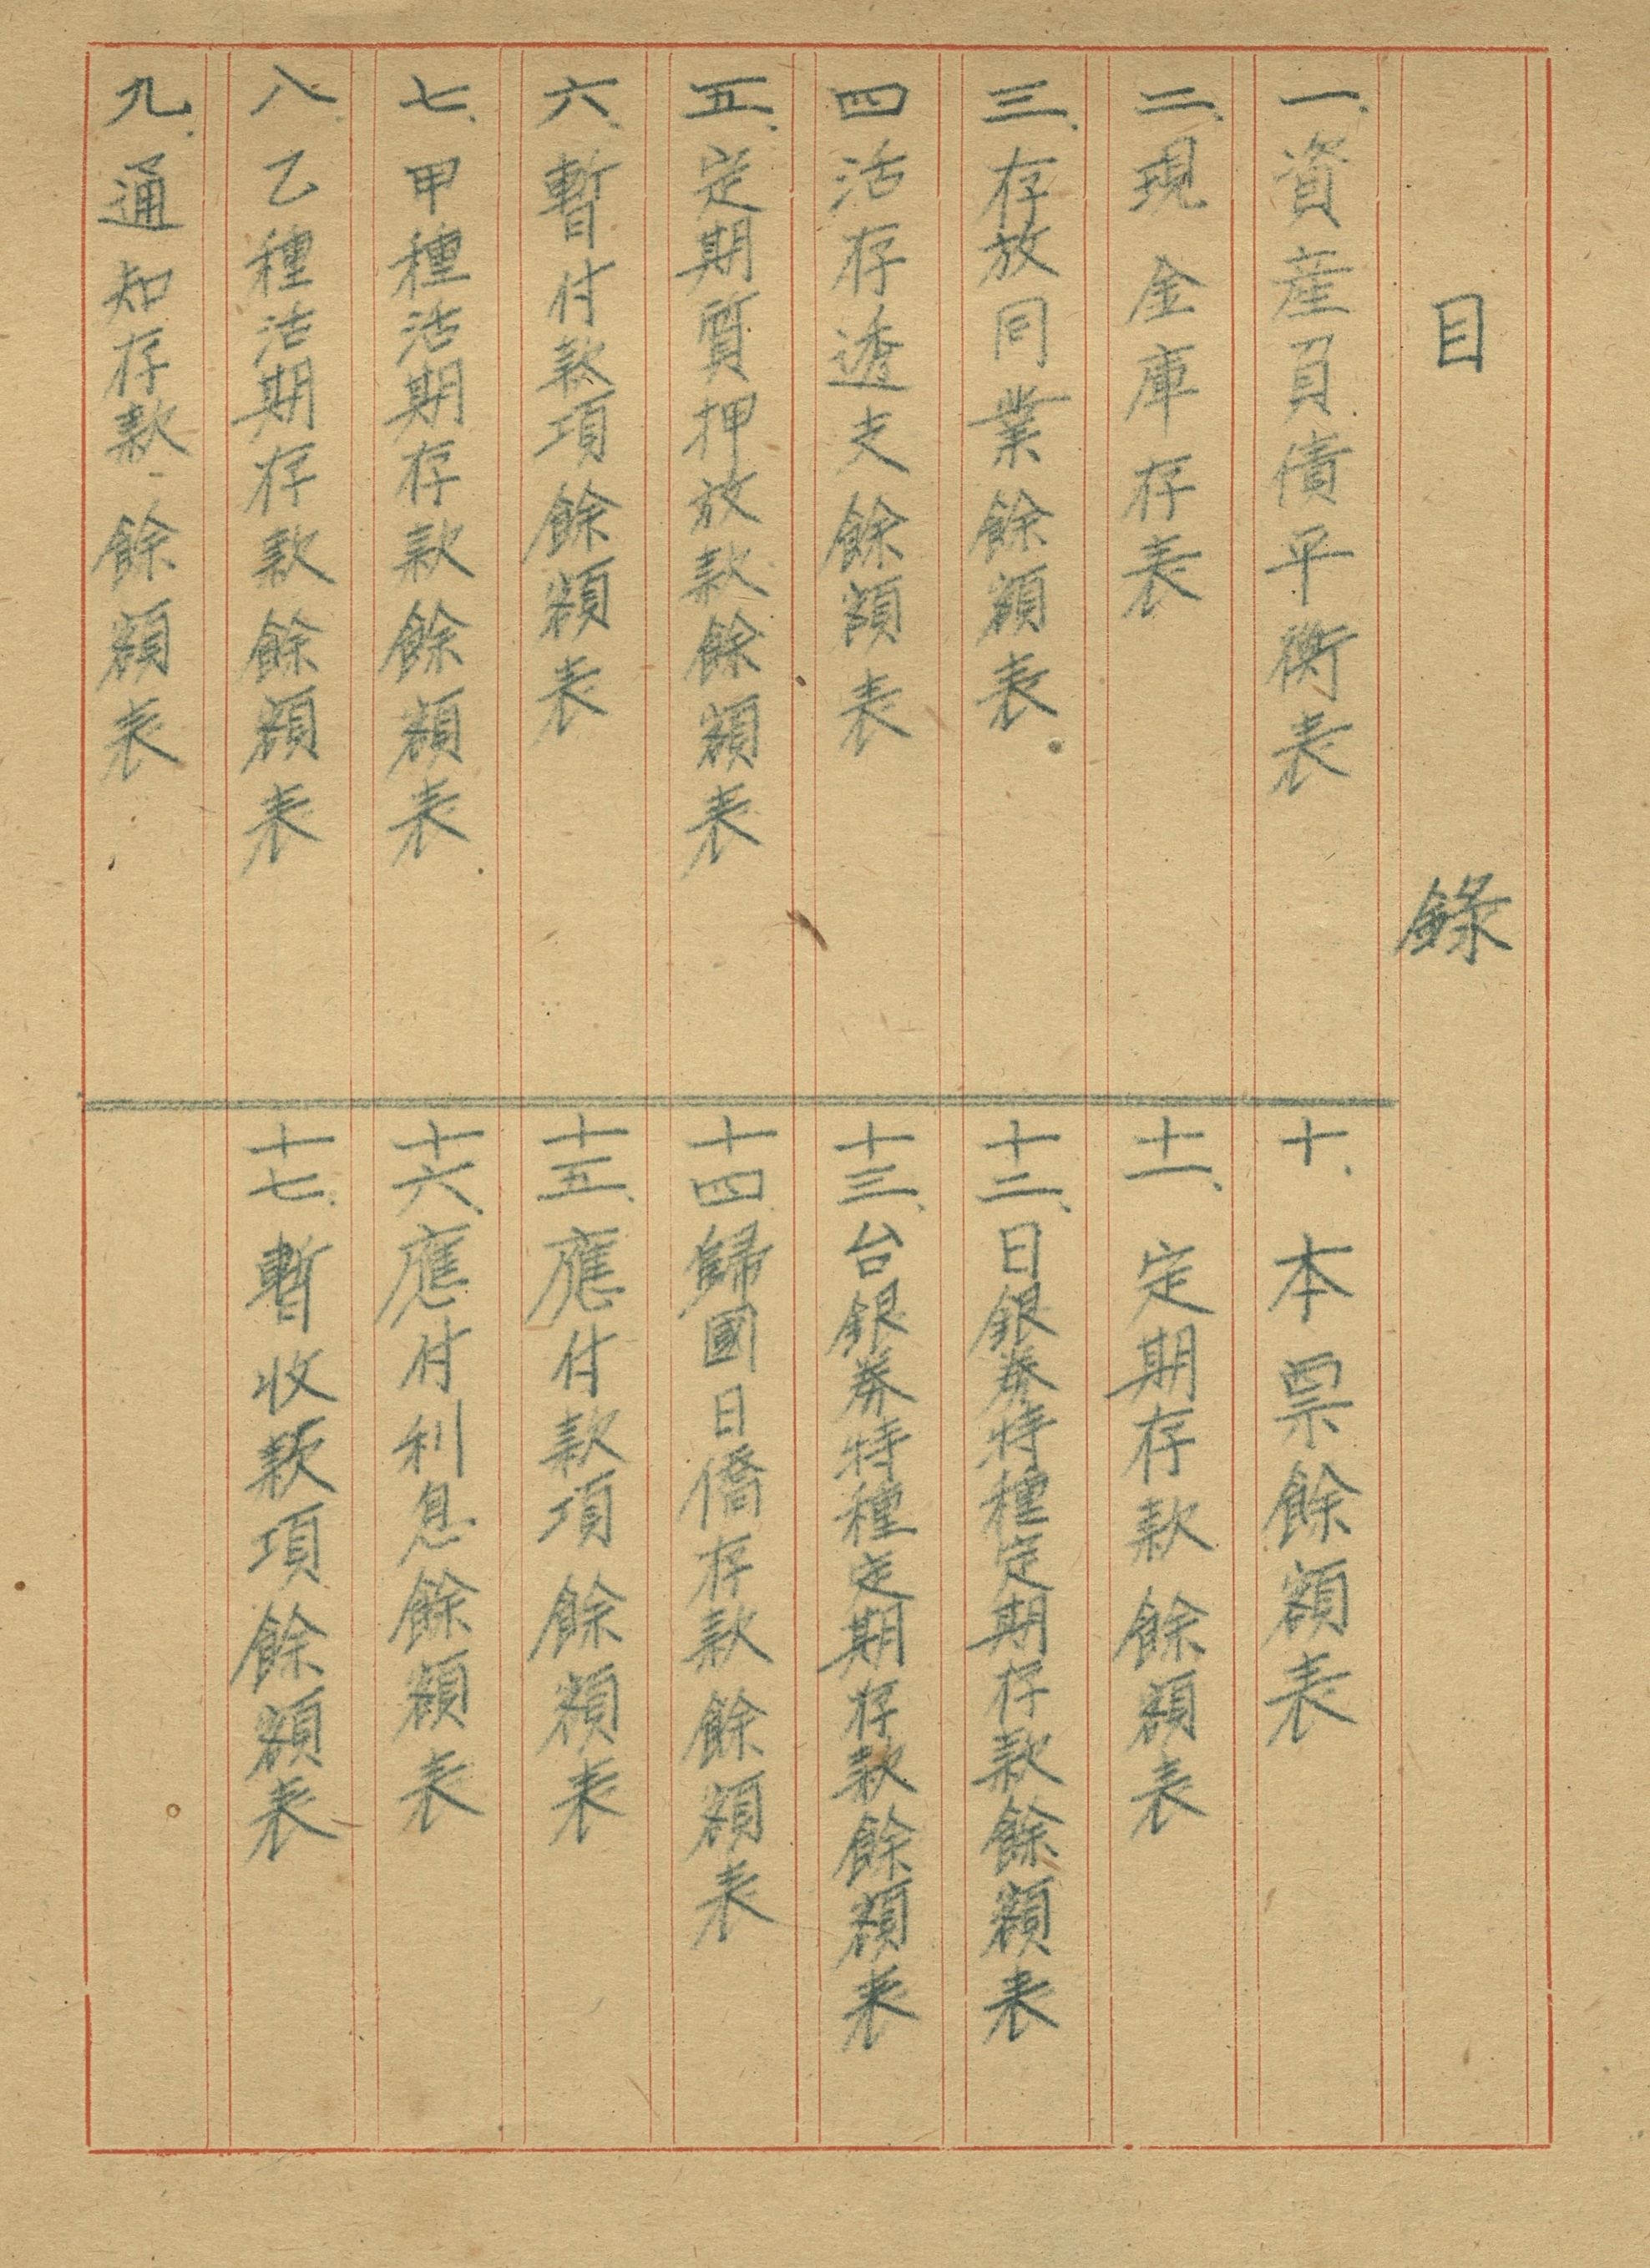 目錄
一、資產負債平衡表
二、現金庫存表
三、存放同業餘額表
四活存透支餘額表
五、定期質押放款餘額表
六、暫付款項餘額表
七、甲種活期存款餘額表
八、乙種活期存款餘額表
九、通知存款餘額表
十、本票餘額表
十一、定期存款餘額表
十二、日銀券特種定期存款餘額表
十三、台銀券特種定期存款餘額表
十四歸國日僑存款餘額表
十五、應付款項餘額表
十六、應付利息餘額表
十七、暫收款項餘額表